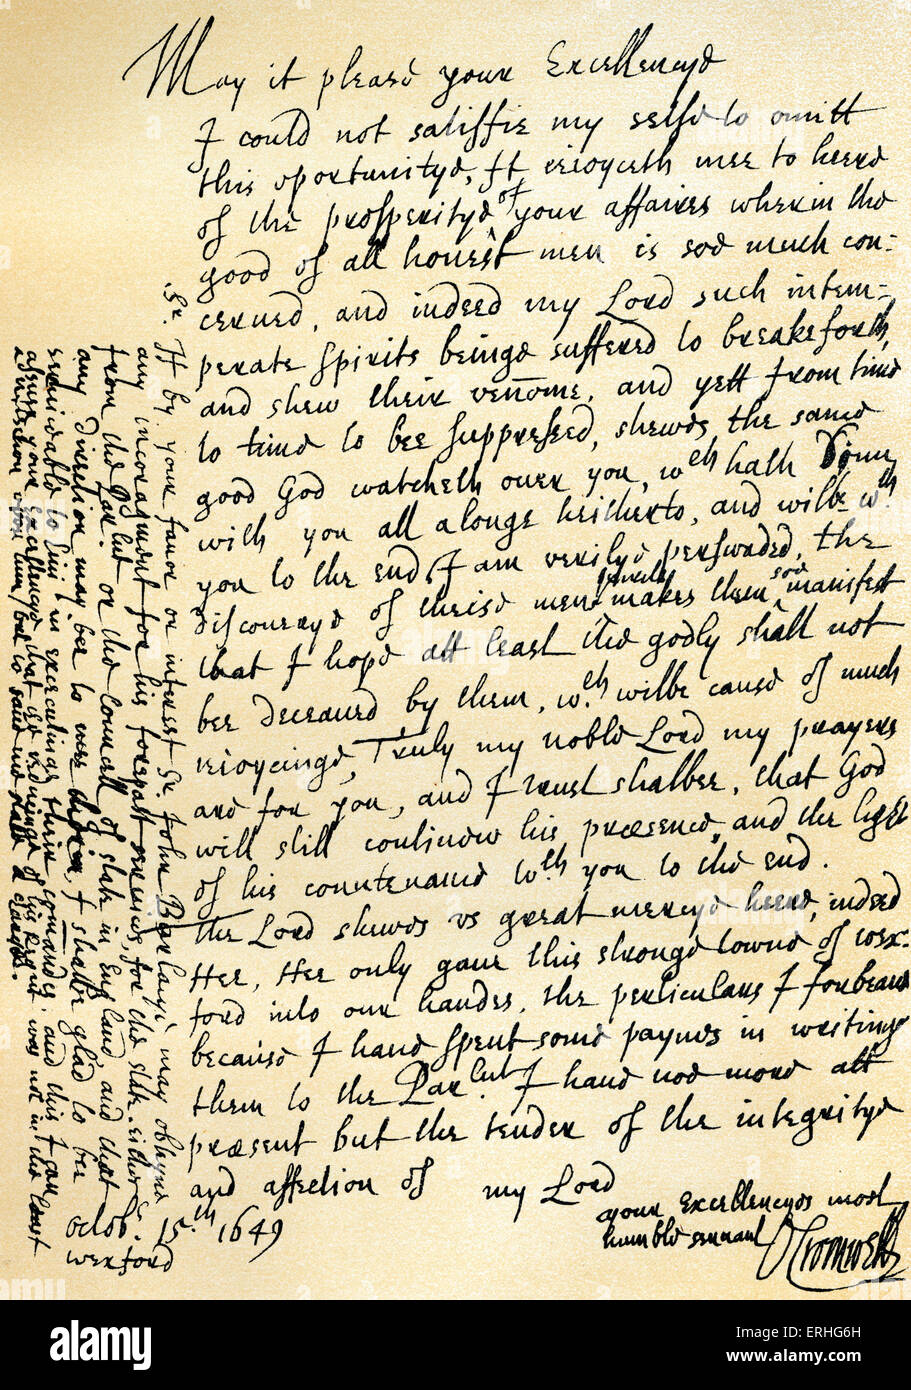 May it please your Excellencye
I could not satisfie my selfe to omitt
this oportunitye, It reioyceth mee to heere
of the prosperitye of your affaires wherin the
good of all honest men is soe much con=
cerned, and indeed my Lord such intem=
perate spirits beinge suffered to breake forth,
and shew their venōme, and yett from time
to time to bee suppressed, shewes the same
good God watcheth over you, wch hath binn
with you all alonge heitherto, and wilbe wth
you to the end, I am verilye perswaded, the
discourye of theise mens spirits makes them soe manifest
that I hope att least the godly shall not
bee deceaued by them, wch wilbe cause of much
reioycinge, Truly my noble Lord my prayers
are for you, and I trust shalbee, that God
will still continew his præsence, and the light
of his countenance wth you to the end.
the Lord shewes vs great mercye heere, indeed
Hee, Hee only gave this stronge towne of wex=
ford into our handes. the perticulars I forbeare
because I have spent some paynes in writinge
them to the Parlnt. I have noe more att
præsent but the tender of the integritye
and affection of my Lord
your Excellencyes most
humble servant
O Cromwell
Octobr. 15th 1649
wexford
Sr. If by your favor or interest Sr. John Barlaye may obteyne
any incoragment for his forepast services, for the state, either
from the Par. but or the Councell of state in England, and that
any direction may bee to mee therein, I shalbee glad to bee
serviceable to him in executinge theire comandes, and this I can
assure your Excellencye that the reduinge of his Regnt was not in the least
upon him, but to save the state a charge.
alamy
Image ID: ERHG6H
www.alamy.com